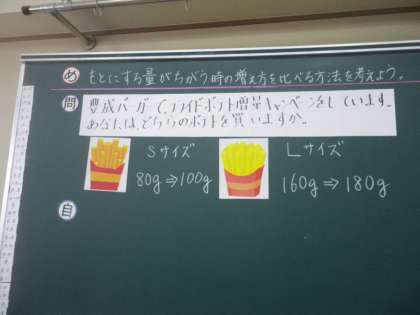 め もとにする量がちがう時の増え方を比べる方法を考えよう。
問 豊成バーガーで、フライドポテト増量キャンペーンをしています。
あなたは、どちらのポテトを買いますか。
Sサイズ
80g⇒100g
Lサイズ
160g⇒180g
自